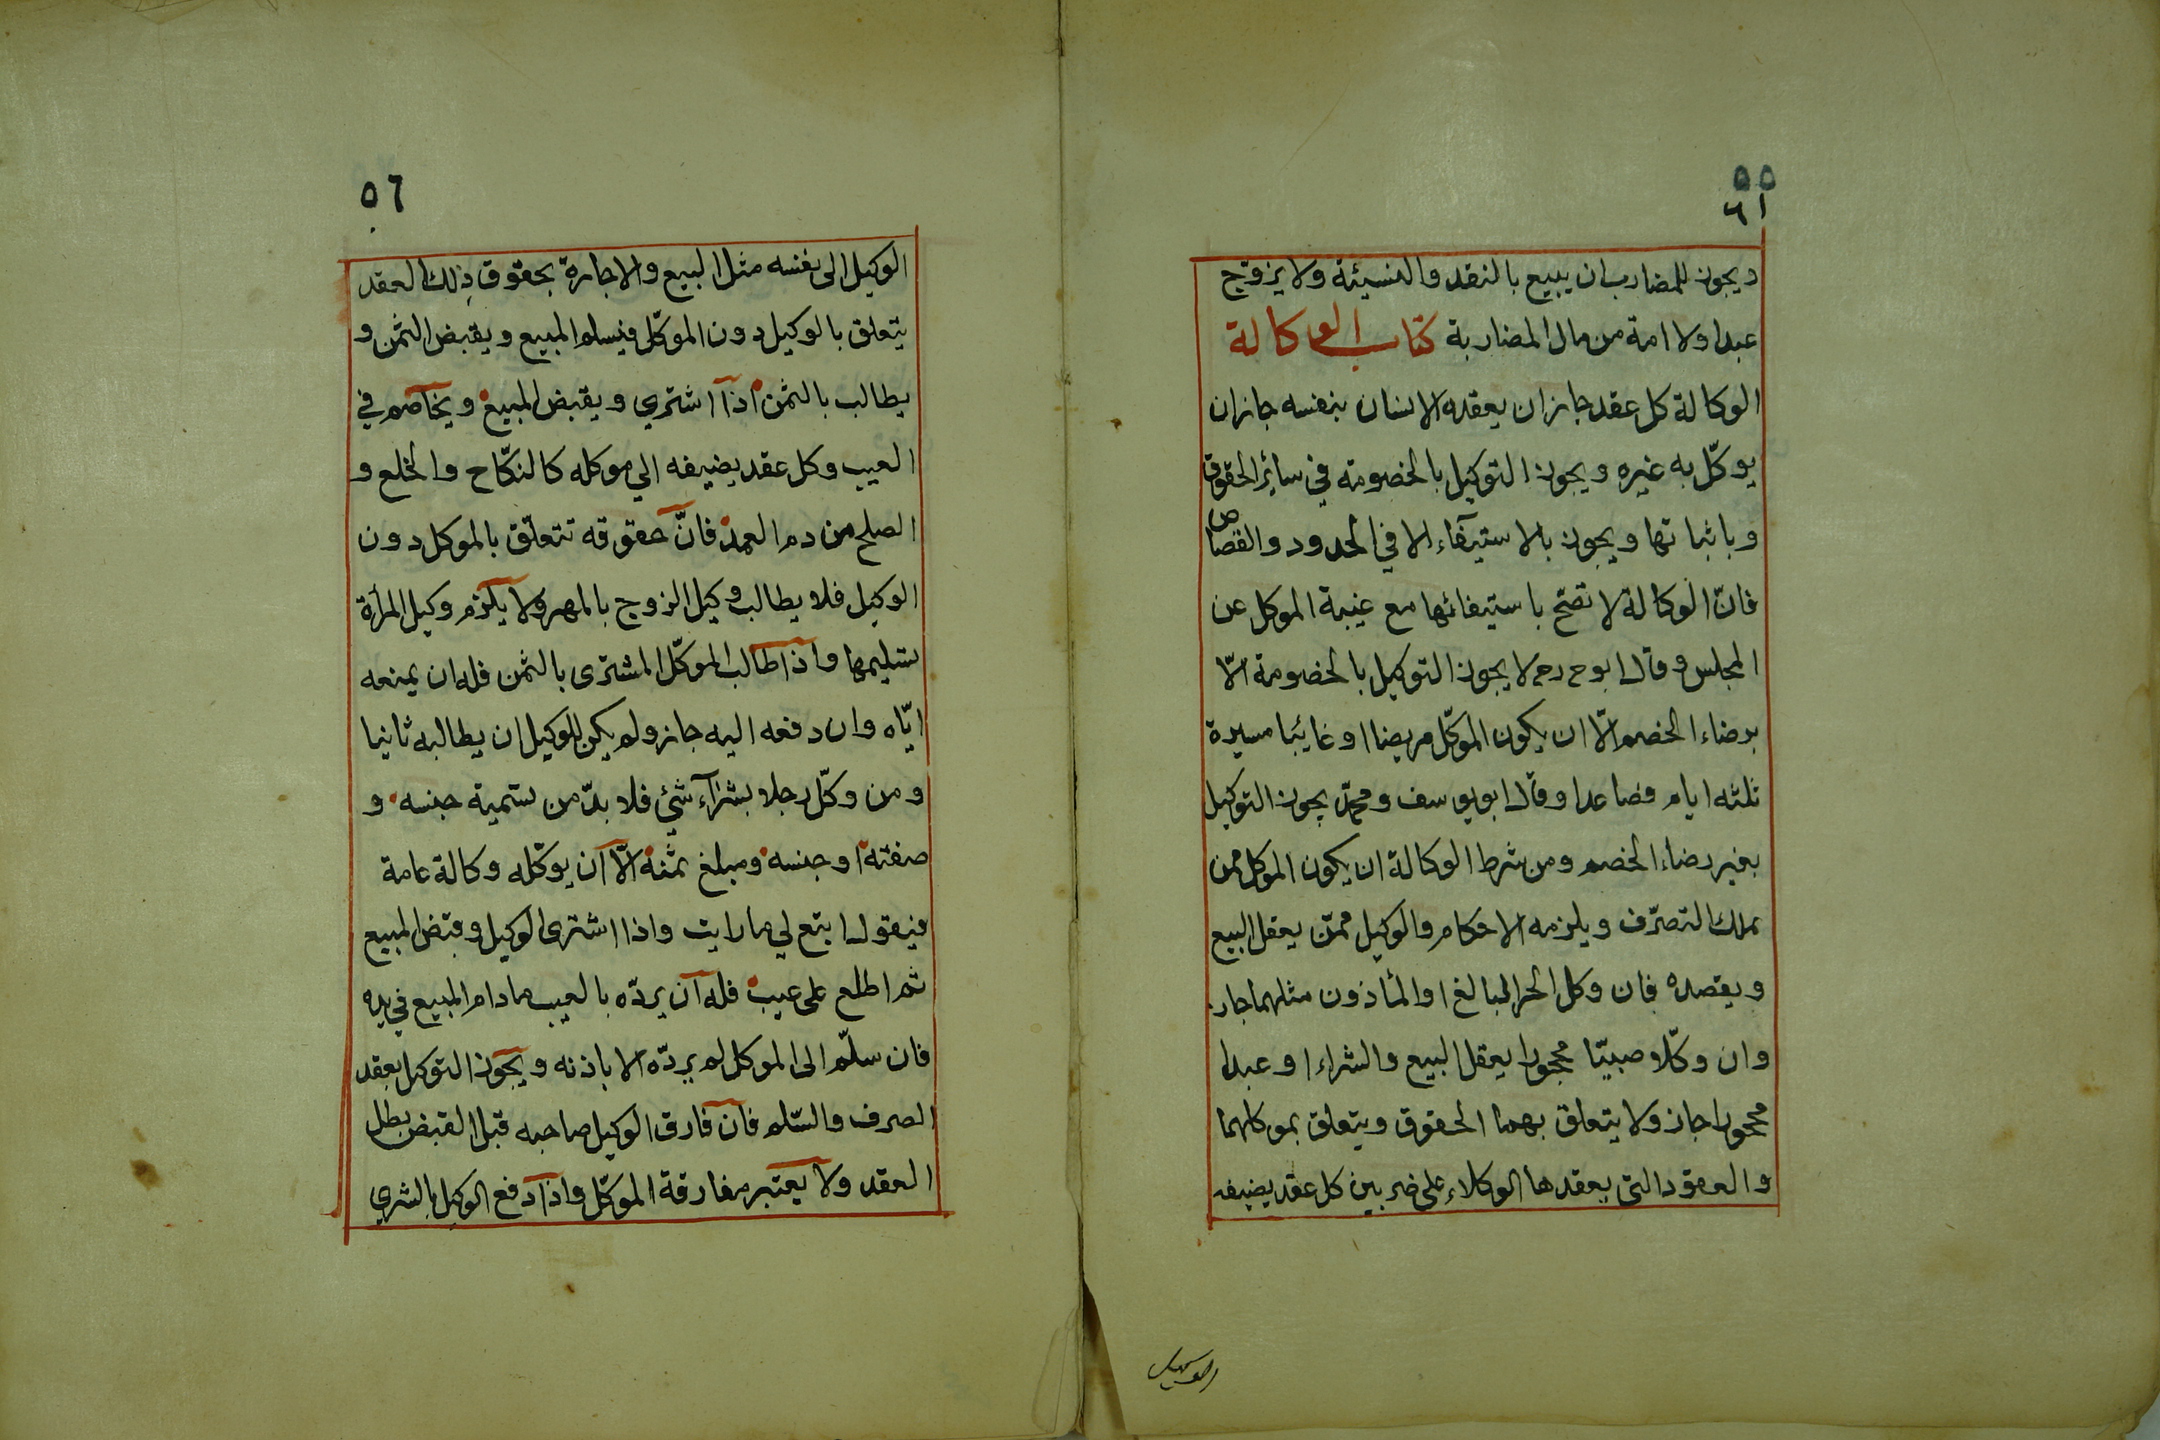 ٥٥
٦١
ويجوز للمضارب ان يبيع بالنقد والنسيئة ولا يزوج
عبدا ولا امة من مال المضاربة كتاب الوكالة
الوكالة كل عقد جاز ان يعقده الانسان بنفسه جاز ان
يوكّل به غيره ويجوز التوكيل بالخصومة في سائر الحقوق
وباثباتها ويجوز بالاستيفآء الا في الحدود والقصاص
فانّ الوكالة لا تصّح باستيفائها مع غيبة الموكل عن
المجلس وقال ابو ح رح لا يجوز التوكيل بالخصومة الّا
برضاء الخصم الّا ان يكون الموكّل مريضا او غايبا مسيرة
ثلثه ايام فصاعدا وقال ابو يوسف ومحمّد يجوز التوكيل
بغير رضاء الخصم ومن شرط الوكالة ان يكون الموكل ممن
يملك التصرّف ويلزمه الاحكام والوكيل ممّن يعقل البيع
ويقصده فان وكل الحر البالغ او المأذون مثلهما جاز
وان وكّلا صبيّا محجورا يعقل البيع والشراء او عبدا
محجورا جاز ولا يتعلق بهما الحقوق ويتعلق بموكلهما
والعقود التي يعقدها الوكلاء على ضربين كل عقد يضيفه
الوكيل
٥٦
الوكيل الى نفسه مثل البيع والاجارة بحقوق ذلك العقد
يتعلق بالوكيل دون الموكّل فيسلم المبيع ويقبض الثمن و
يطالب بالثمن اذا اشتري ويقبض المبيع ويخاصم في
العيب وكل عقد يضيفه الي موكله كالنكّاح والخلع و
الصلح من دم العمد فانّ حقوقه تتعلّق بالموكل دون
الوكيل فلا يطالب وكيل الزوج بالمهر ولا يلزم وكيل المرأة
تسليمها واذا طالب الموكّل المشترى بالثمن فله ان يمنعه
ايّاه وان دفعه اليه جاز ولم يكن للوكيل ان يطالبه ثانيا
ومن وكّل رجلا بشرآء شئ فلا بدّ من تسمية جنسه و
صفته او جنسه ومبلغ ثمنه الّا ان يوكّله وكالة عامة
فيقول ابتع لي ما رايت واذا اشترى الوكيل وقبض المبيع
ثم اطلع على عيب فله ان يردّه بالعيب مادام المبيع في يده
فان سلّم الى الموكل لم يردّه الا باذنه ويجوز التوكيل بعقد
الصرف والسّلم فان فارق الوكيل صاحبه قبل القبض بطل
العقد ولا يعتبر مفارقة الموكّل واذا دفع الوكيل بالشري